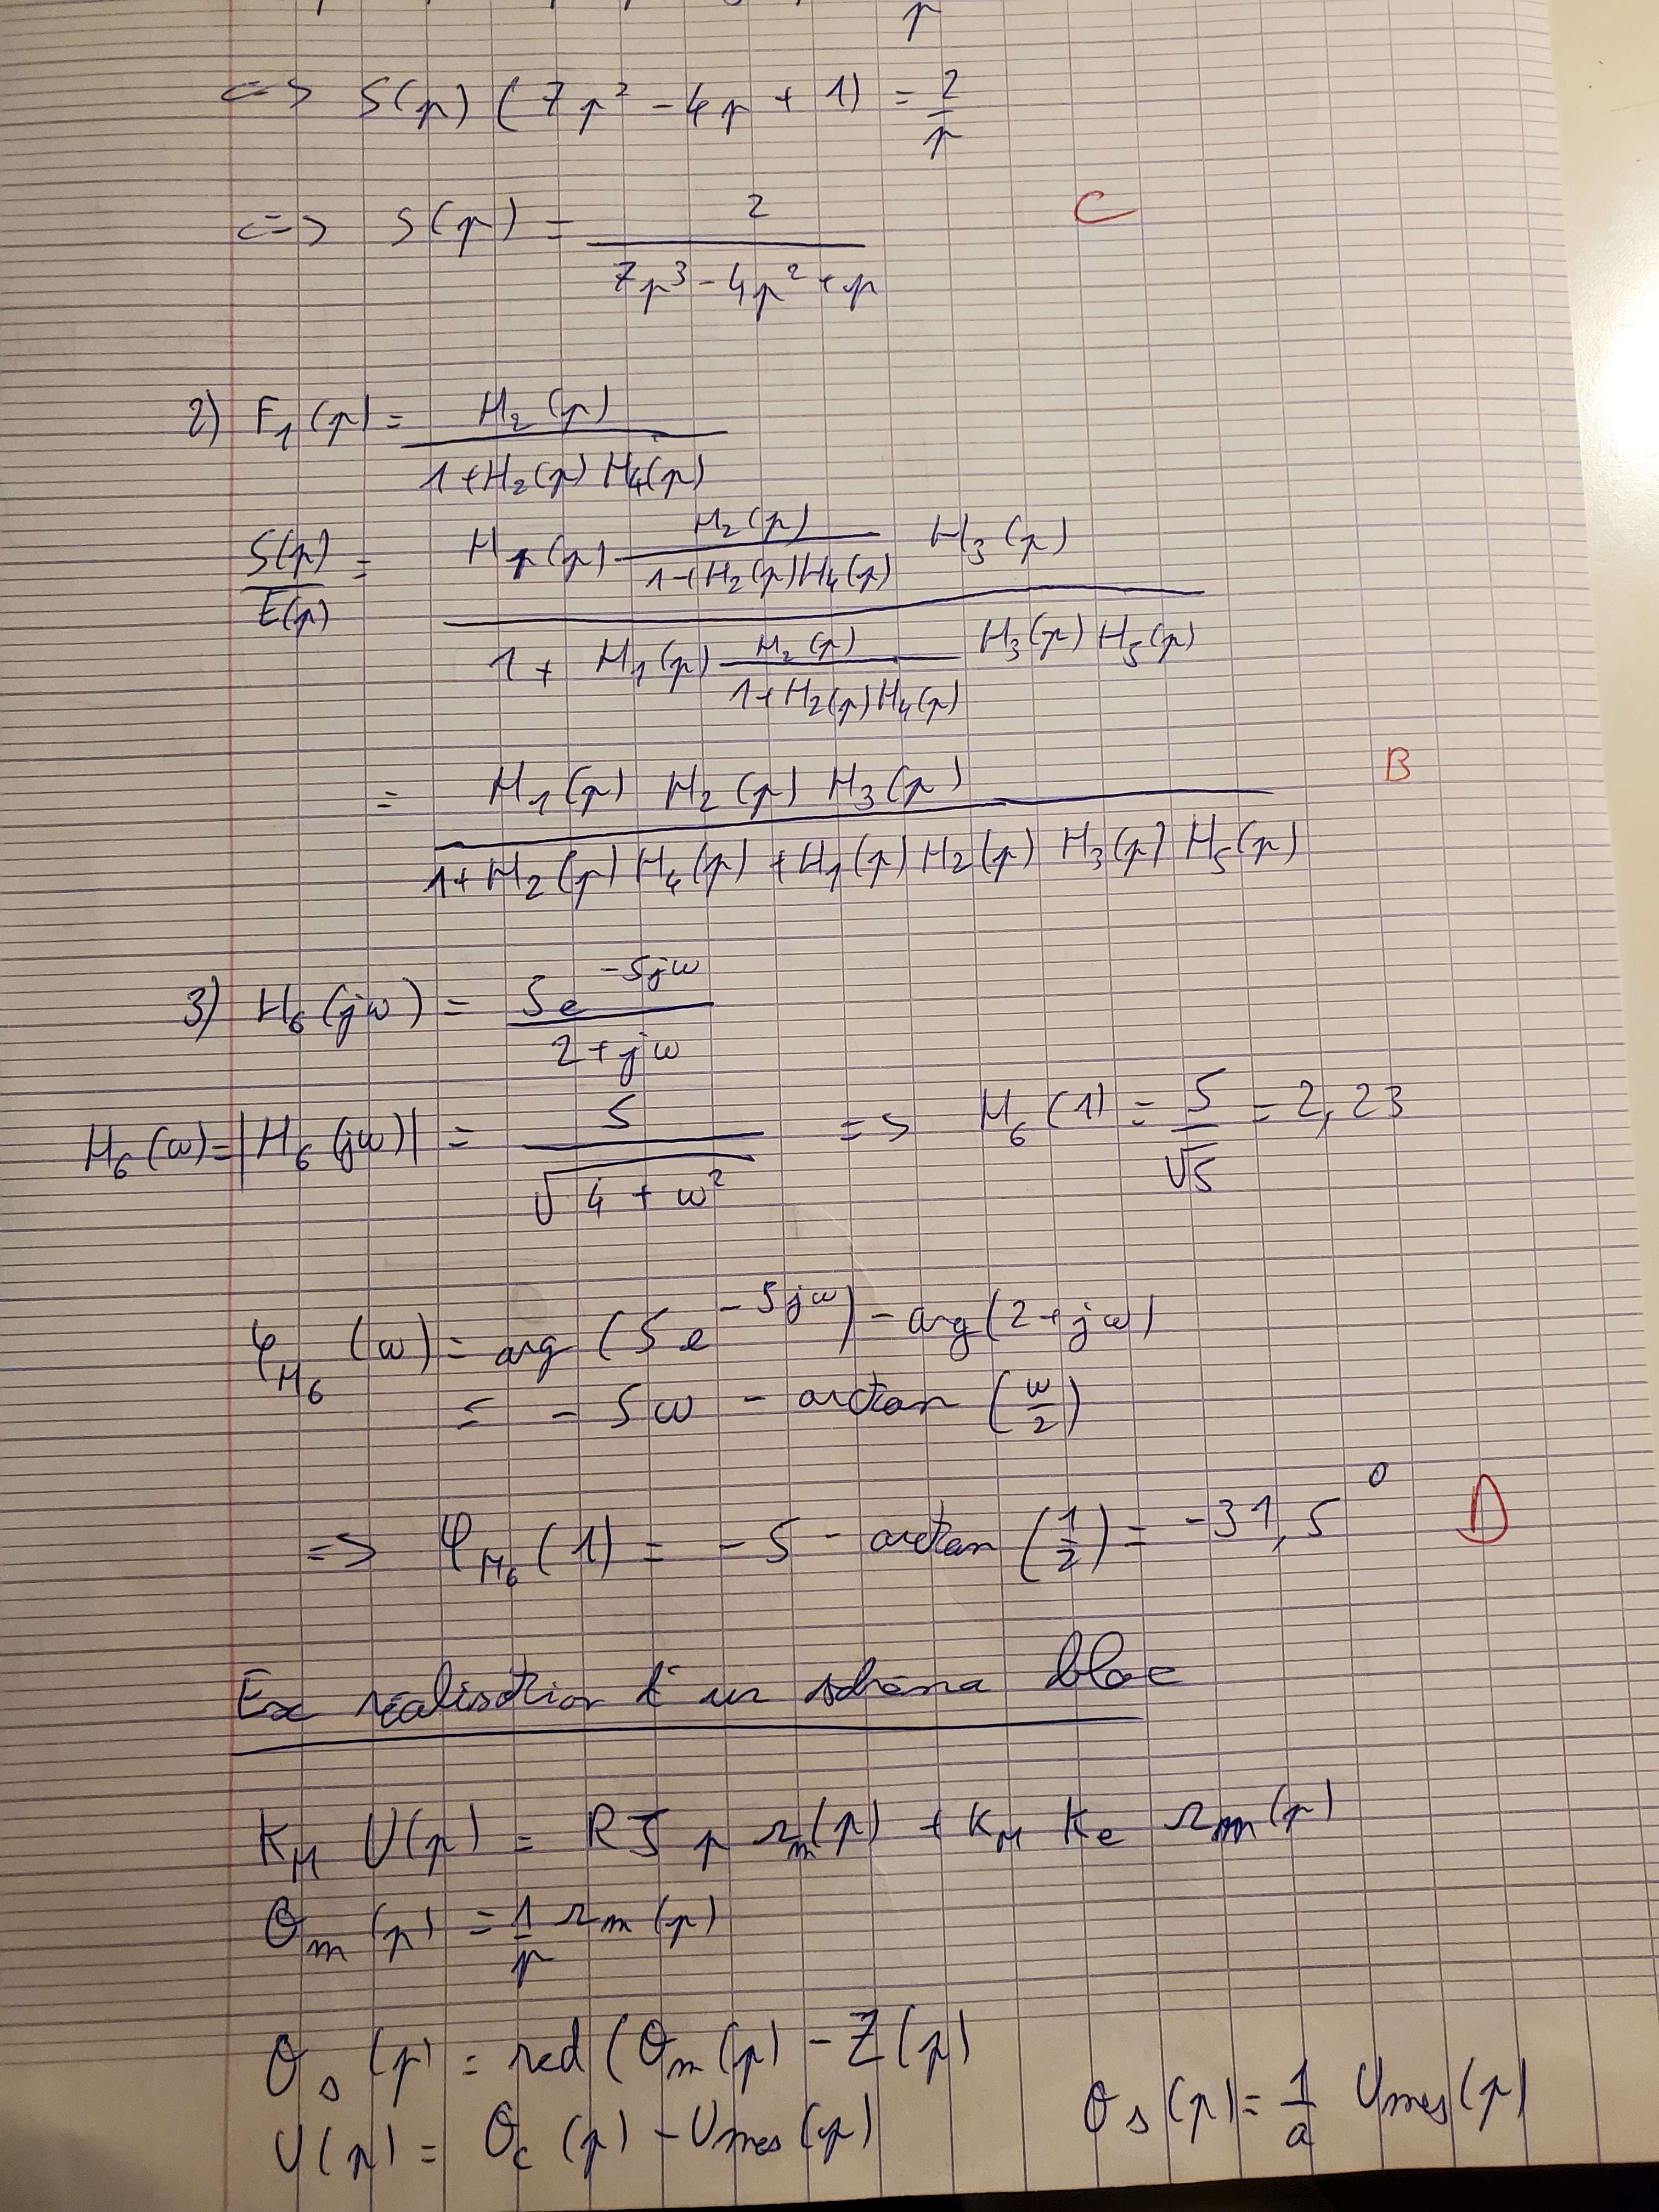 <=> S(p) (7p² - 4p + 1) = 2/p
<=> S(p) = 2/(7p³ - 4p² + p) C
2) F₁(p) = H₂(p)/(1+H₂(p) H₄(p))
S(p)/E(p) = (H₁(p) H₂(p)/(1+H₂(p)H₄(p)) H₃(p))/(1 + H₁(p) H₂(p)/(1+H₂(p)H₄(p)) H₃(p) H₅(p))
= H₁(p) H₂(p) H₃(p)/(1+H₂(p) H₄(p) + H₁(p) H₂(p) H₃(p) H₅(p)) B
3) H₆(jω) = 5e^(-5jω)/(2+jω)
H₆(ω)=|H₆(jω)| = 5/√(4 + ω²) => H₆(1) = 5/√5 = 2,23
φ_H₆(ω) = arg(5e^(-5jω)) - arg(2+jω)
= - 5ω - arctan(ω/2)
=> φ_H₆(1) = -5 - arctan(1/2) = -31,5° D
Ex réalisation d'un schéma bloc
K_M U(p) = RJ p Ωm(p) + K_M Ke Ωm(p)
θm(p) = 1/p Ωm(p)
θs(p) = red(θm(p) - Z(p)
U(p) = θc(p) - Umes(p) θs(p) = 1/a Umes(p)